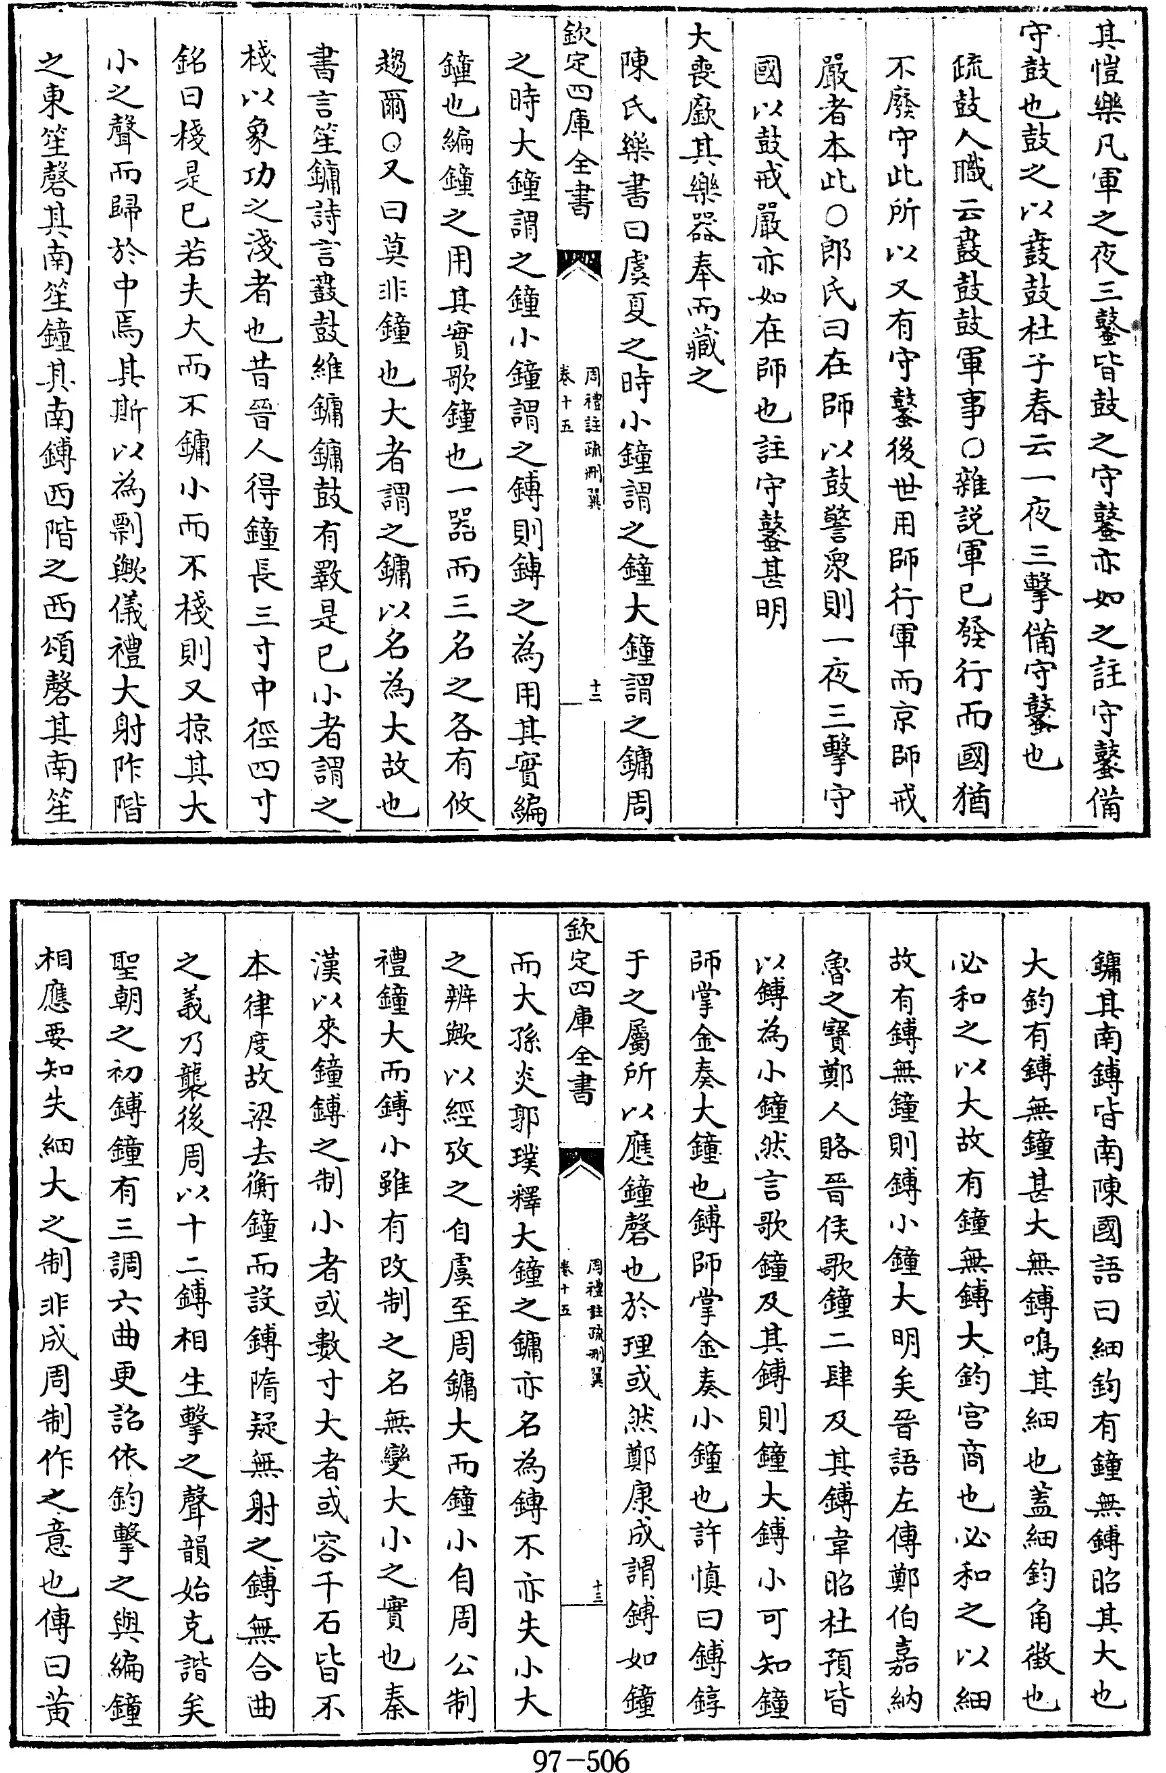 其愷樂凡軍之夜三鼜皆鼓之守鼜亦如之註守鼜備
守鼓也鼓之以鼖鼓杜子春云一夜三擊備守鼜也
疏鼓人職云鼖鼓鼓軍事○雜說軍已發行而國猶
不廢守此所以又有守鼜後世用師行軍而京師戒
嚴者本此○郎氏曰在師以鼓警衆則一夜三擊守
國以鼓戒嚴亦如在師也註守鼜甚明
大喪廞其樂器奉而藏之
陳氏樂書曰虞夏之時小鐘謂之鐘大鐘謂之鏞周
欽定四庫全書
周禮註疏刪翼
卷十五
十二
之時大鐘謂之鐘小鐘謂之鎛則鎛之為用其實編
鐘也編鐘之用其實歌鐘也一器而三名之各有攸
趨爾○又曰莫非鐘也大者謂之鏞以名為大故也
書言笙鏞詩言鼖鼓維鏞鏞鼓有斁是已小者謂之
棧以象功之淺者也昔晉人得鐘長三寸中徑四寸
銘曰棧是已若夫大而不鏞小而不棧則又掠其大
小之聲而歸於中焉其斯以為剽歟儀禮大射阼階
之東笙磬其南笙鐘其南鎛西階之西頌磬其南笙
鏞其南鎛皆南陳國語曰細鈞有鐘無鎛昭其大也
大鈞有鎛無鐘甚大無鎛鳴其細也蓋細鈞角徵也
必和之以大故有鐘無鎛大鈞宫商也必和之以細
故有鎛無鐘則鎛小鐘大明矣晉語左傳鄭伯嘉納
魯之寶鄭人賂晉侯歌鐘二肆及其鎛韋昭杜預皆
以鎛為小鐘然言歌鐘及其鎛則鐘大鎛小可知鐘
師掌金奏大鐘也鎛師掌金奏小鐘也許慎曰鎛錞
于之屬所以應鐘磬也於理或然鄭康成謂鎛如鐘
欽定四庫全書
周禮註疏刪翼
卷十五
十三
而大孫炎郭璞釋大鐘之鏞亦名為鎛不亦失小大
之辨歟以經攷之自虞至周鏞大而鐘小自周公制
禮鐘大而鎛小雖有改制之名無變大小之實也秦
漢以來鐘鎛之制小者或數寸大者或容千石皆不
本律度故梁去衡鐘而設鎛隋疑無射之鎛無合曲
之義乃襲後周以十二鎛相生擊之聲韻始克諧矣
聖朝之初鎛鐘有三調六曲更詔依鈞擊之與編鐘
相應要知失細大之制非成周制作之意也傳曰黃
97-506